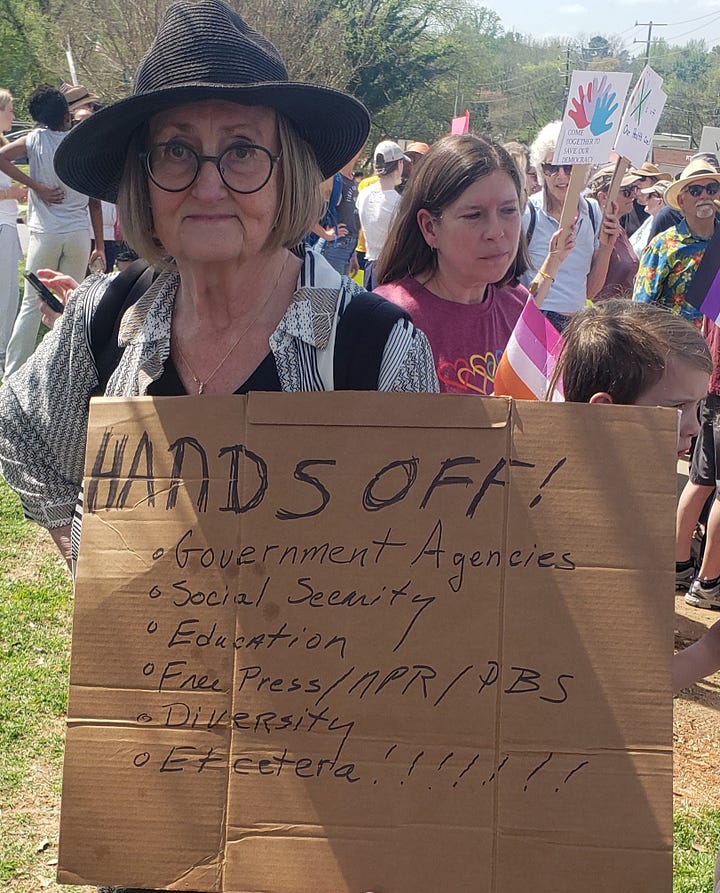 HANDS OFF!
Government Agencies
Social Security
Education
Free Press/NPR/PBS
Diversity
Etcetera!!!!!!!
COME
TOGETHER TO
SAVE OUR
DEMOCRACY